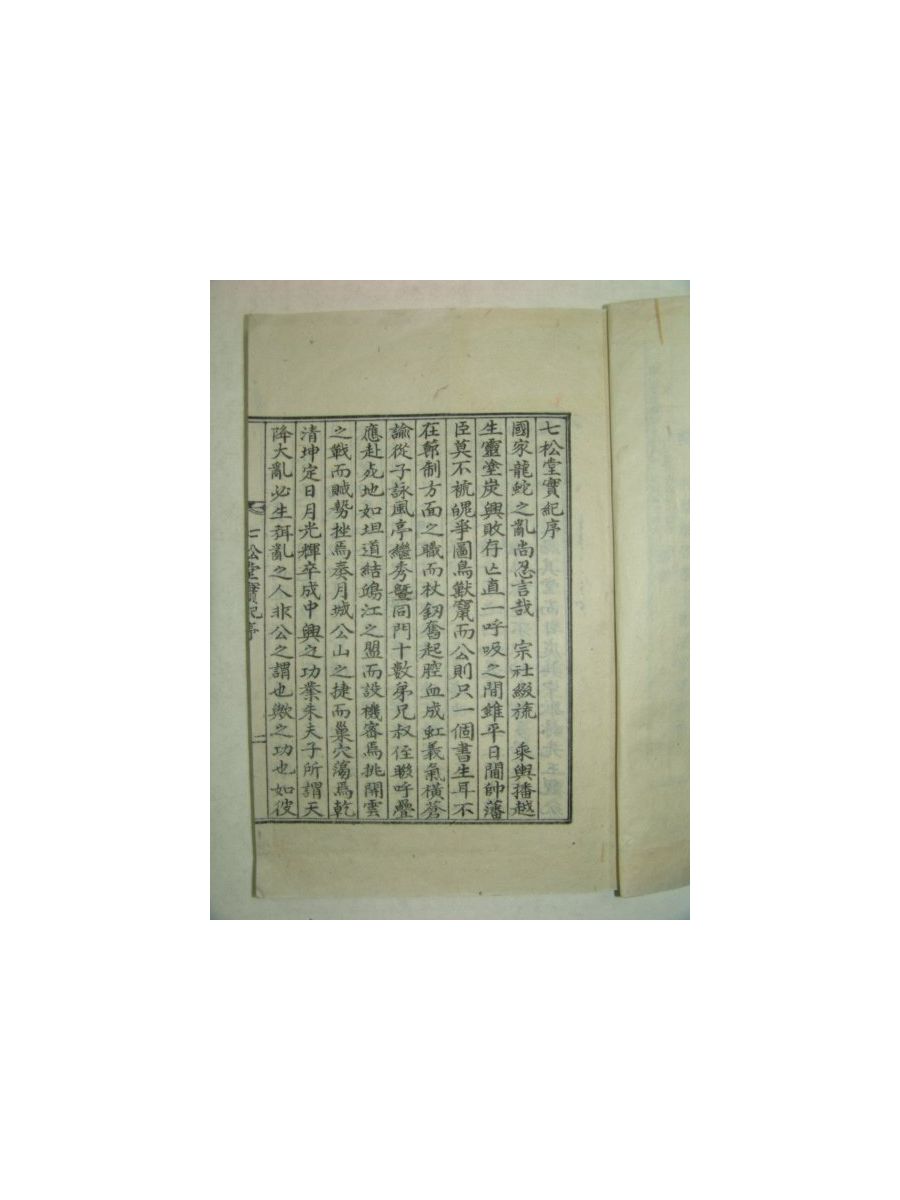 七松堂實紀序
國家龍蛇之亂尚忍言哉 宗社綴旒 乘輿播越
生靈塗炭興敗存亡直一呼吸之間雖平日閫帥藩
臣莫不褫魄爭圖鳥獸竄而公則只一個書生耳不
在節制方面之職而杖釰奮起腔血成虹義氣橫蒼
諭從子詠風亭繼秀曁同門十數弟兄叔侄聯呼疊
應赴死地如坦道結鴻江之盟而設機審焉挑開雲
之戰而賊勢挫焉奏月城公山之捷而巢穴蕩焉乾
清坤定日月光輝卒成中興之功業朱夫子所謂天
降大亂必生弭亂之人非公之謂也歟之功也如彼
七松堂實紀序 一